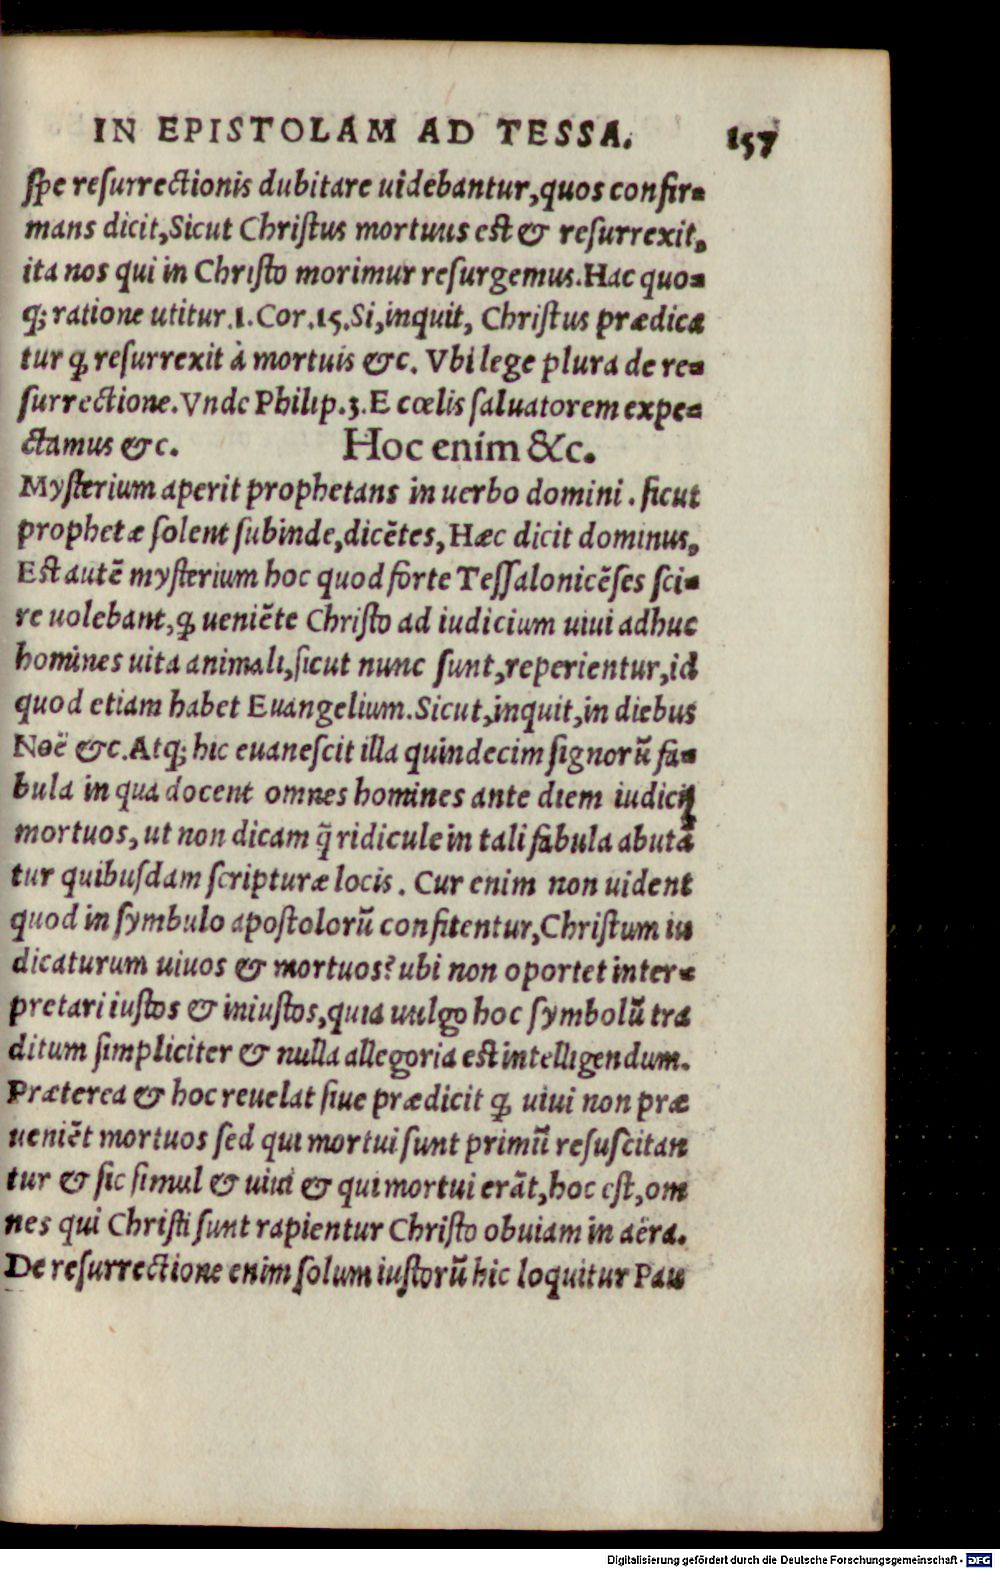 IN EPISTOLAM AD TESSA. 157
ſpe reſurrectionis dubitare uidebantur,quos confir-
mans dicit,Sicut Chriſtus mortuus eſt & reſurrexit,
ita nos qui in Chriſto morimur reſurgemus.Hac quo-
q; ratione utitur.1.Cor.15.Si,inquit, Chriſtus prædica
tur ꝙ reſurrexit à mortuis &c. Vbi lege plura de re-
ſurrectione.Vnde Philip.3.E cœlis ſaluatorem expe-
ctamus &c. Hoc enim &c.
Myſterium aperit prophetans in uerbo domini . ſicut
prophetæ ſolent ſubinde,dicẽtes, Hæc dicit dominus,
Eſt autẽ myſterium hoc quod forte Teſſalonicẽſes ſci-
re uolebant,ꝙ ueniẽte Chriſto ad iudicium uiui adhuc
homines uita animali,ſicut nunc ſunt,reperientur,id
quod etiam habet Euangelium.Sicut,inquit,in diebus
Noë &c.Atq; hic euaneſcit illa quindecim ſignorũ fa-
bula in qua docent omnes homines ante diem iudicij
mortuos, ut non dicam q̃ ridicule in tali fabula abutã
tur quibuſdam ſcripturæ locis . Cur enim non uident
quod in ſymbulo apoſtolorũ confitentur,Chriſtum iu
dicaturum uiuos & mortuos? ubi non oportet inter-
pretari iuſtos & iniuſtos,quia uulgo hoc ſymbolũ tra
ditum ſimpliciter & nulla allegoria eſt intelligendum.
Præterea & hoc reuelat ſiue prædicit ꝙ uiui non præ
ueniẽt mortuos ſed qui mortui ſunt primũ reſuſcitan
tur & ſic ſimul & uiui & qui mortui erãt,hoc eſt,om
nes qui Chriſti ſunt rapientur Chriſto obuiam in aëra.
De reſurrectione enim ſolum iuſtorũ hic loquitur Pau
Digitalisierung gefördert durch die Deutsche Forschungsgemeinschaft - DFG